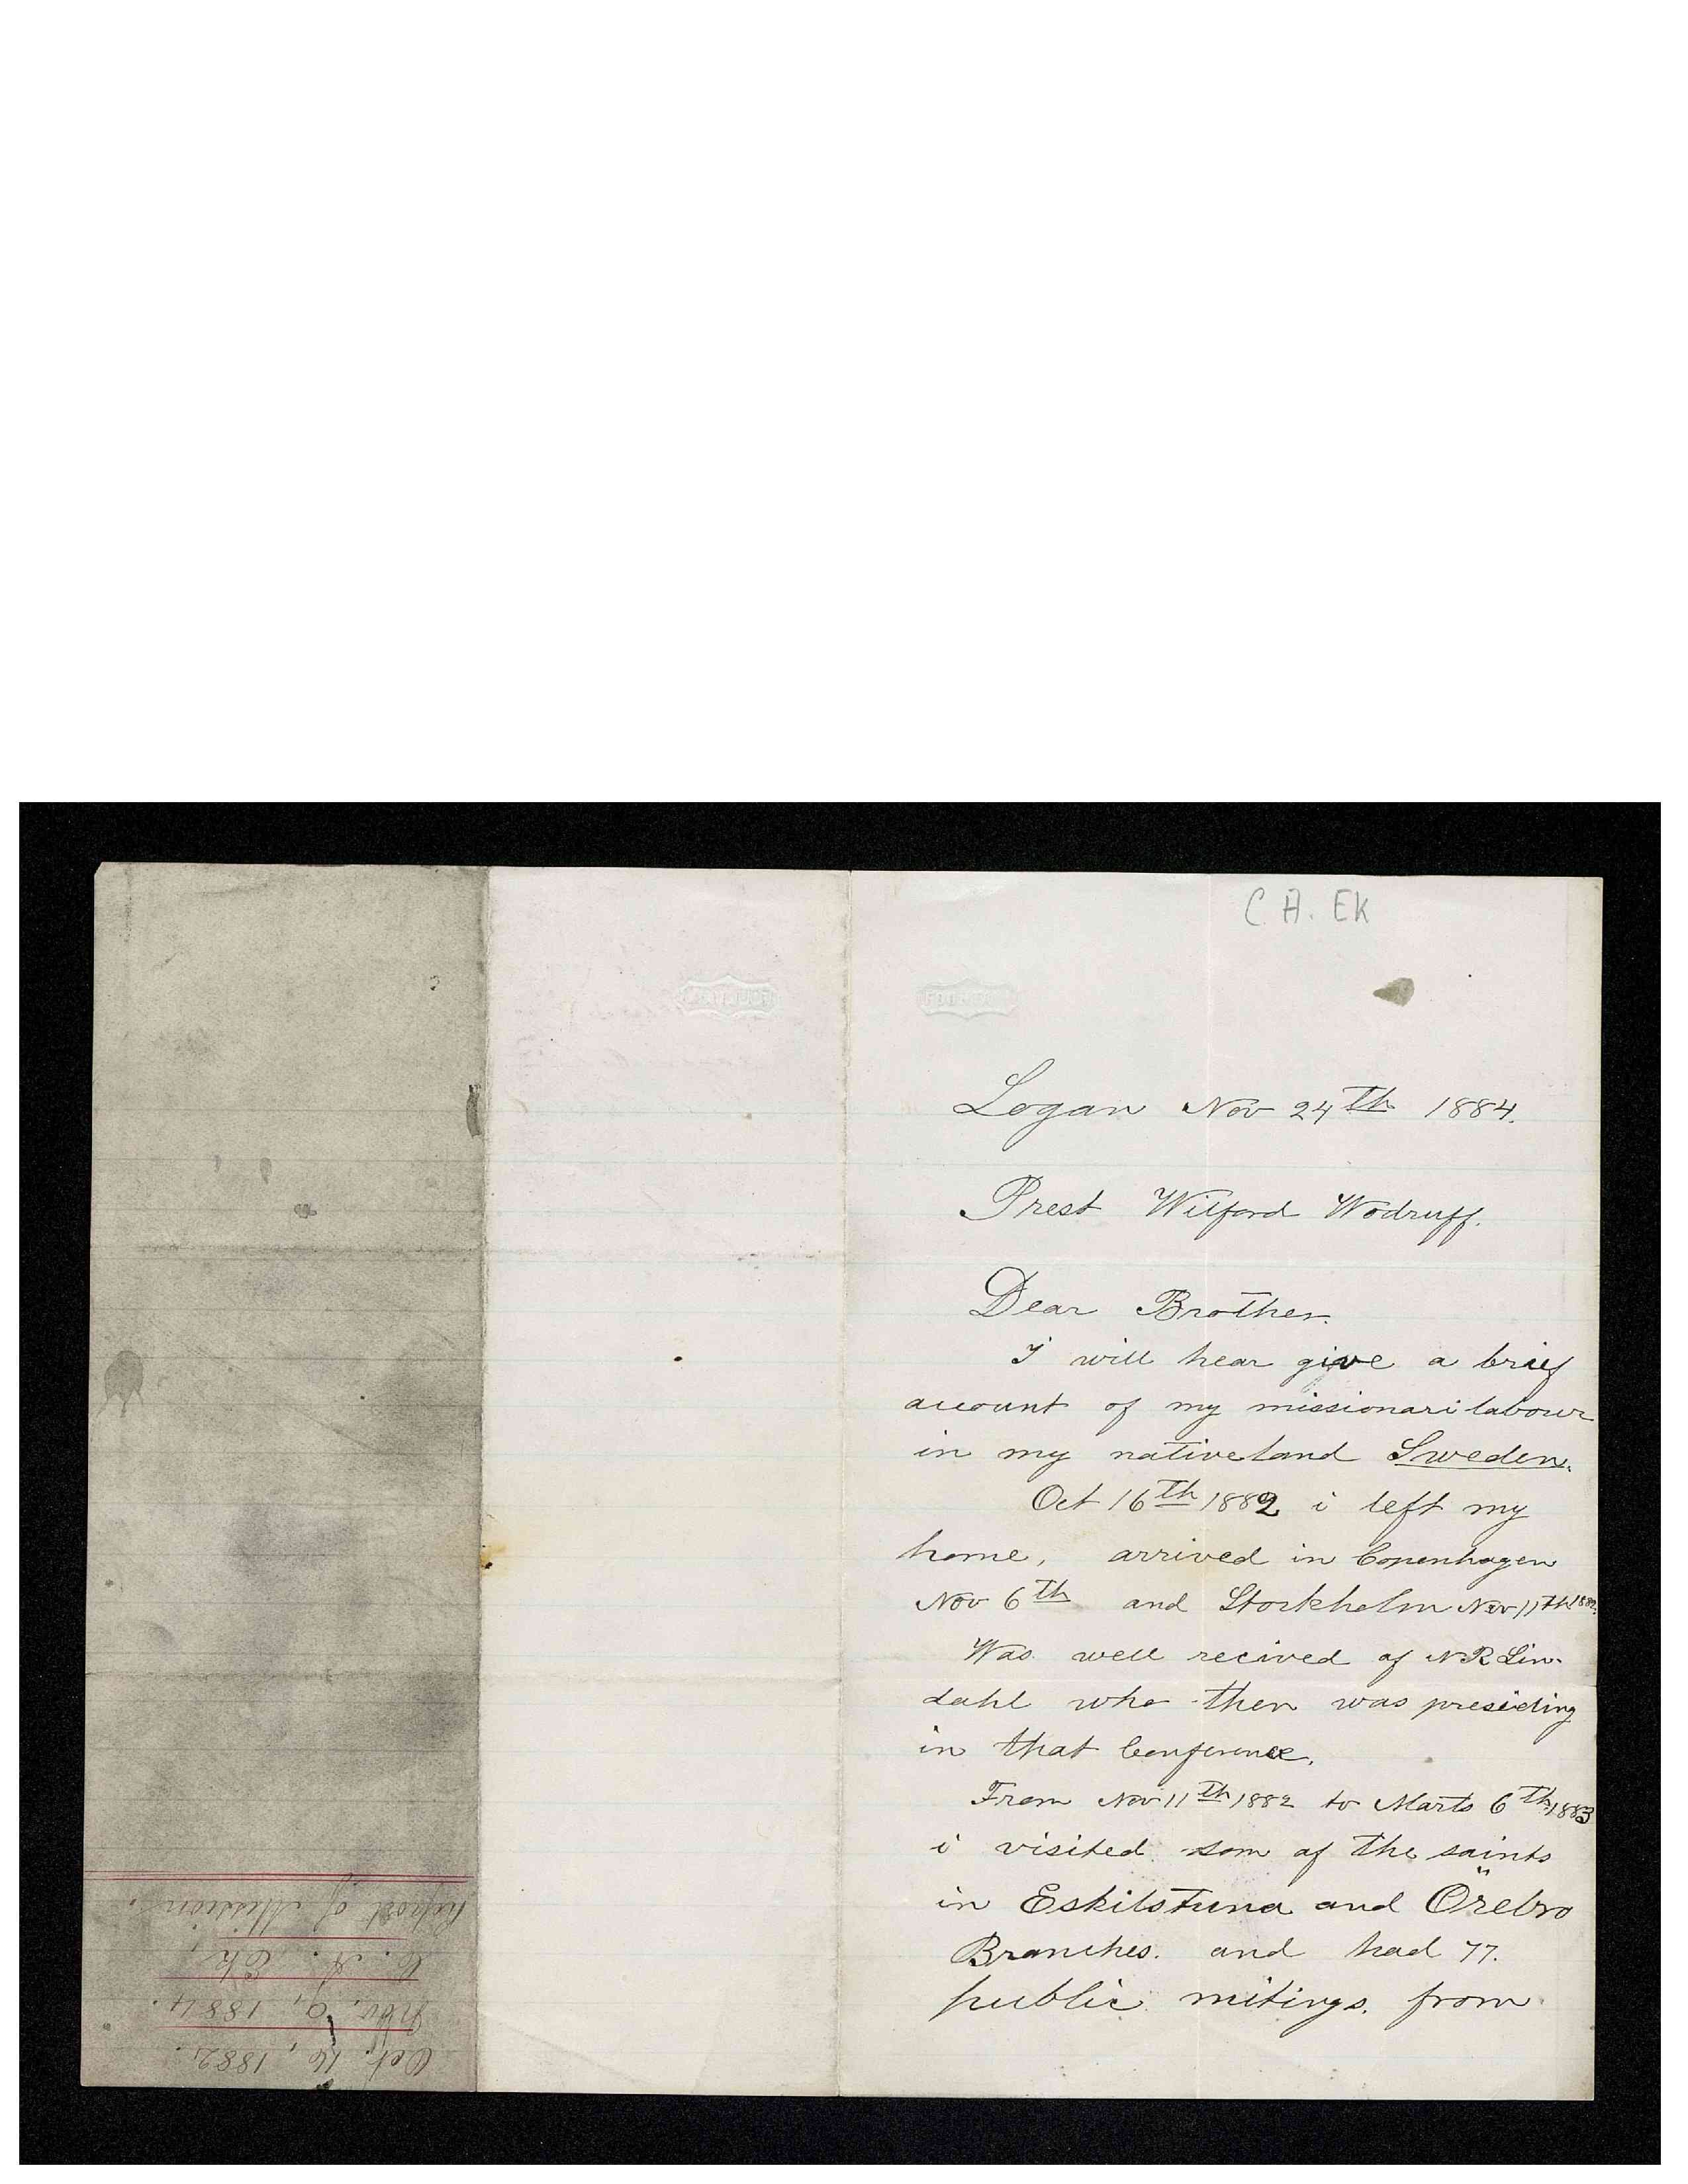 C. A. Ek
Logan Nov 24th 1884.
Prest Wilford Wodruff.
Dear Brother.
I will hear give a brief
account of my missionari labour
in my nativeland Sweden.
Oct 16th 1882 i left my
home, arrived in Copenhagen
Nov 6th and Stockholm Nov 11th 1882.
Was well recived of N R Lin-
dahl who then was presiding
in that Conference.
From Nov 11th 1882 to Marts 6th 1883
i visited som of the saints
in Eskilstuna and Örebro
Branches. and had 77.
public mitings. from
Oct. 16, 1882.
Nov. 9, 1884.
C. A. Ek,
Report of Mission.